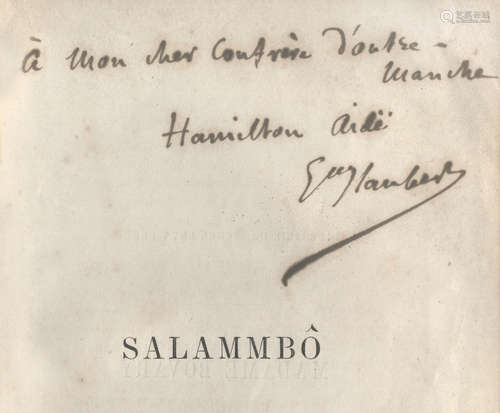 À Mon cher Confrère d'outre-
Manche
Hamilton Aïdé
Gve Flaubert
SALAMMBÔ
MADAME BOVARY